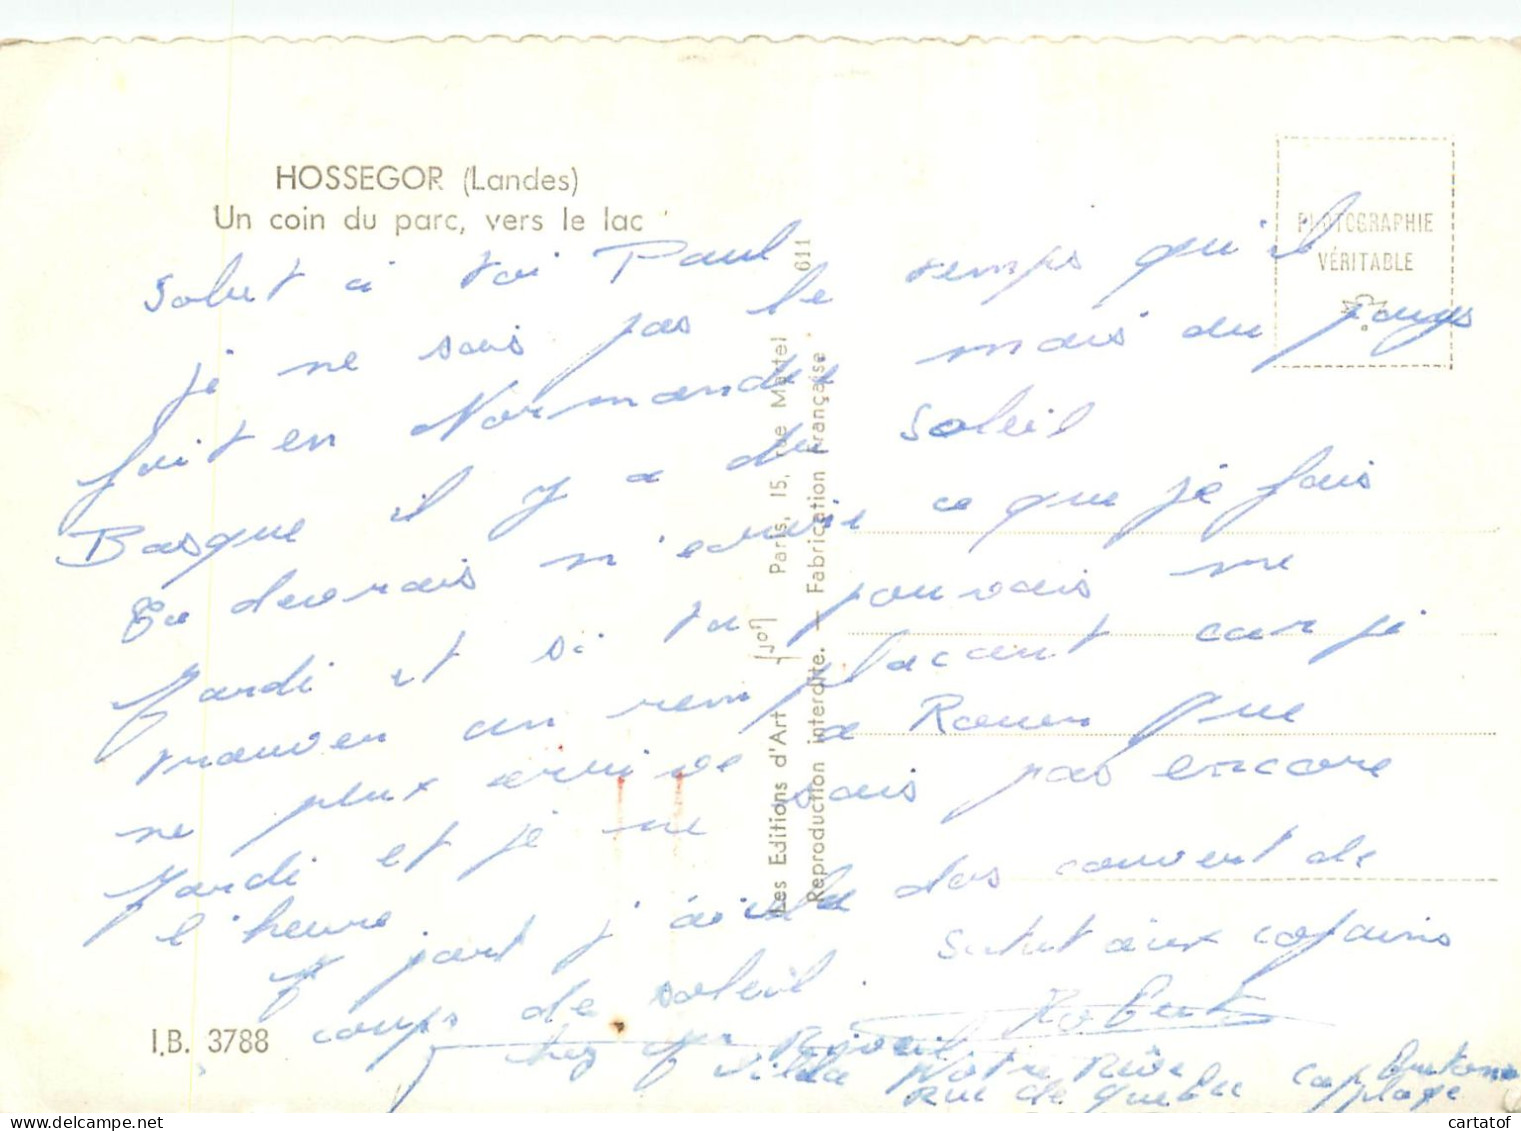 HOSSEGOR (Landes)
Un coin du parc, vers le lac
PHOTOGRAPHIE
VÉRITABLE
Salut à toi Paul
je ne sais pas le temps qu'il
fait en Normandie mais au pays
Basque il y a du soleil
Tu devrais m'ecrire ce que je fais
Mardi et si tu pouvais me
trouver un remplacant car je
ne peux arrive a Rouen que
Mardi et je ne sais pas encore
l'heure
A part j'ai le dos couvert de
coups de soleil. Salut aux copains
Robert
chez Mr
Villa Notre Rêve
Rue de Quebec Capbreton
plage
Les Editions d'Art Yvon Paris, 15, rue Martel 611
Reproduction interdite. — Fabrication Française
I.B. 3788
cartatof